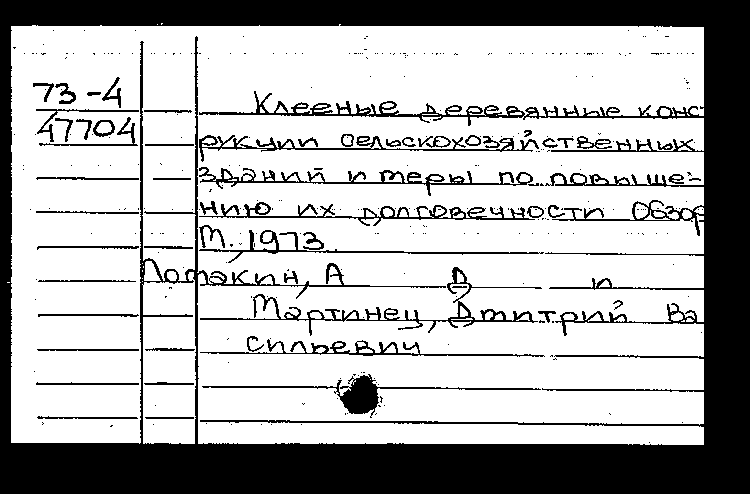 73-4 Клееные деревянные конс
47704 рукции сельскохозяйственных
зданий и меры по повыше-
нию их долговечности Обзор
М., 1973
Ломакин, А Д и
Мартинец, Дмитрий Ва
сильевич